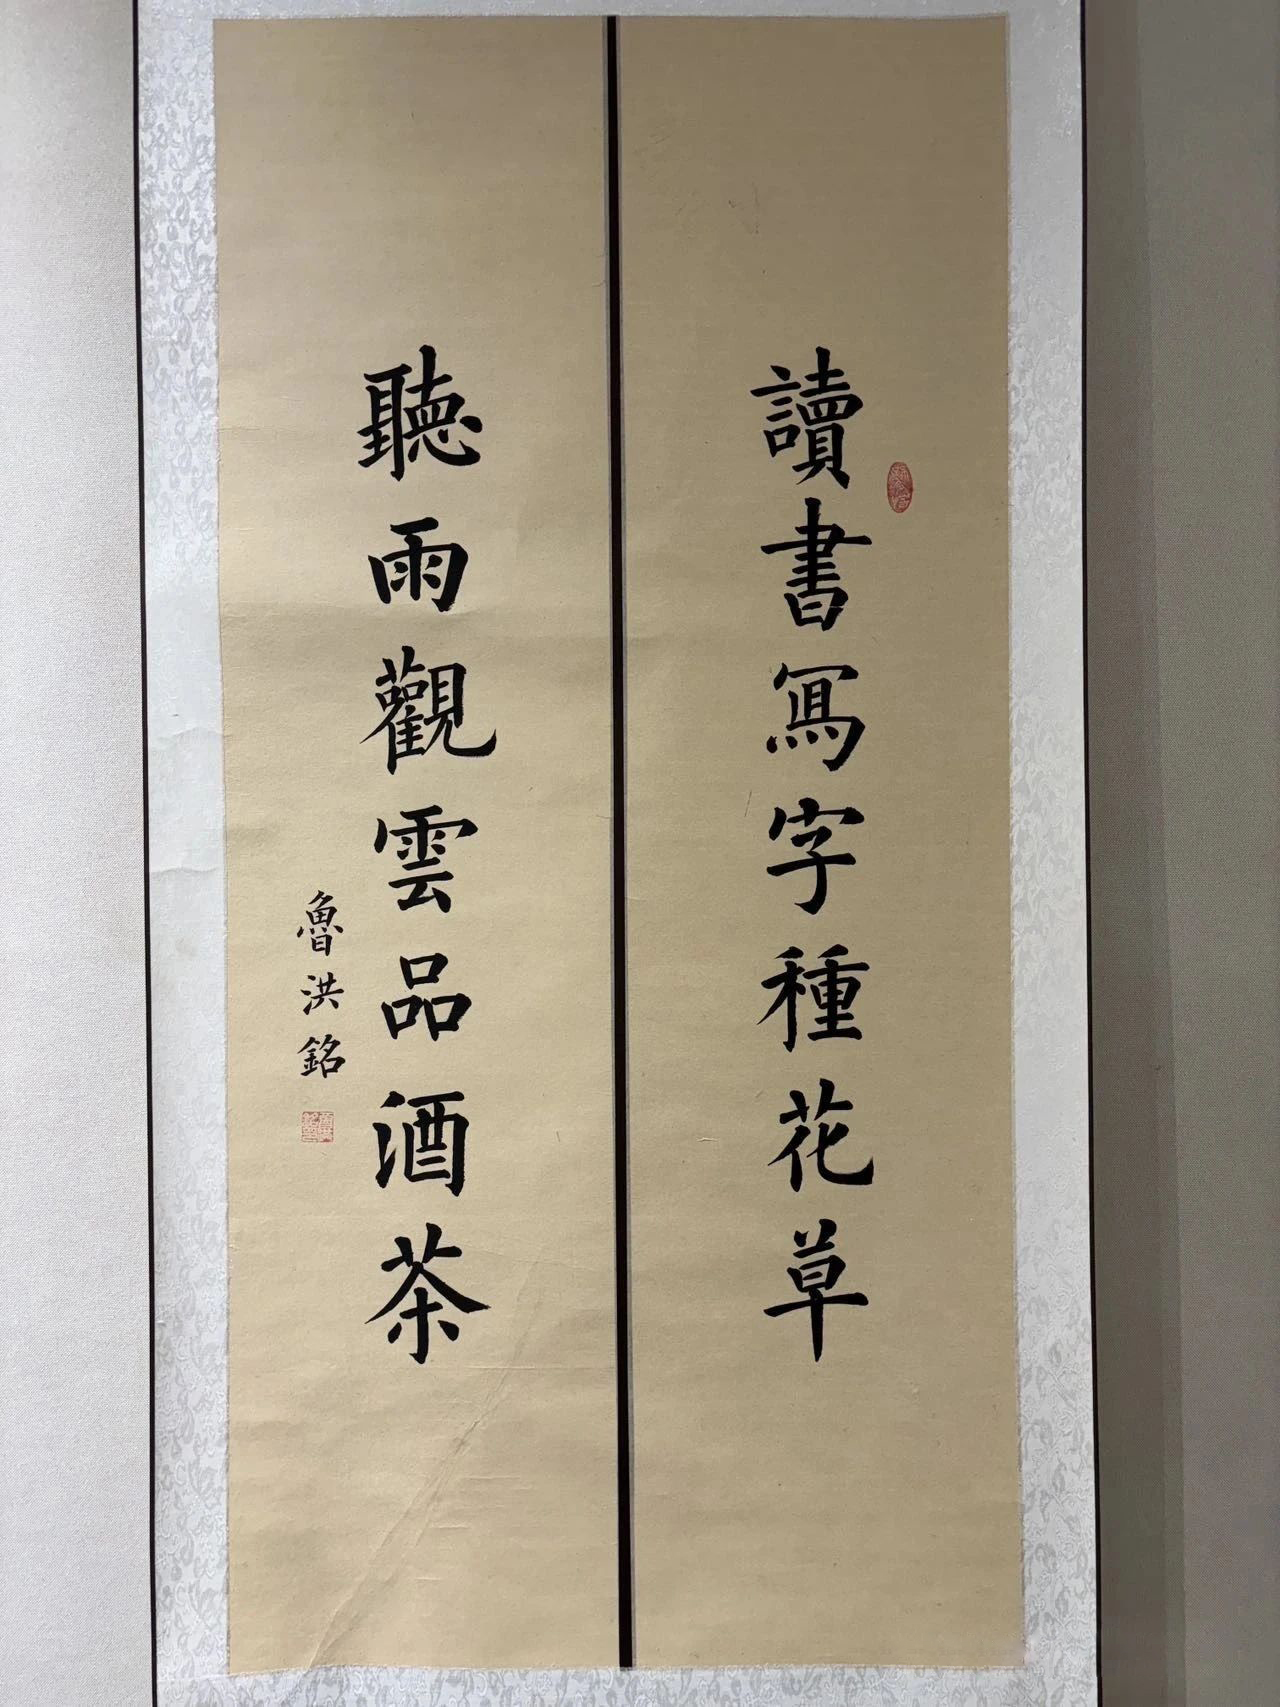 讀書寫字種花草
聽雨觀雲品酒茶
魯洪銘